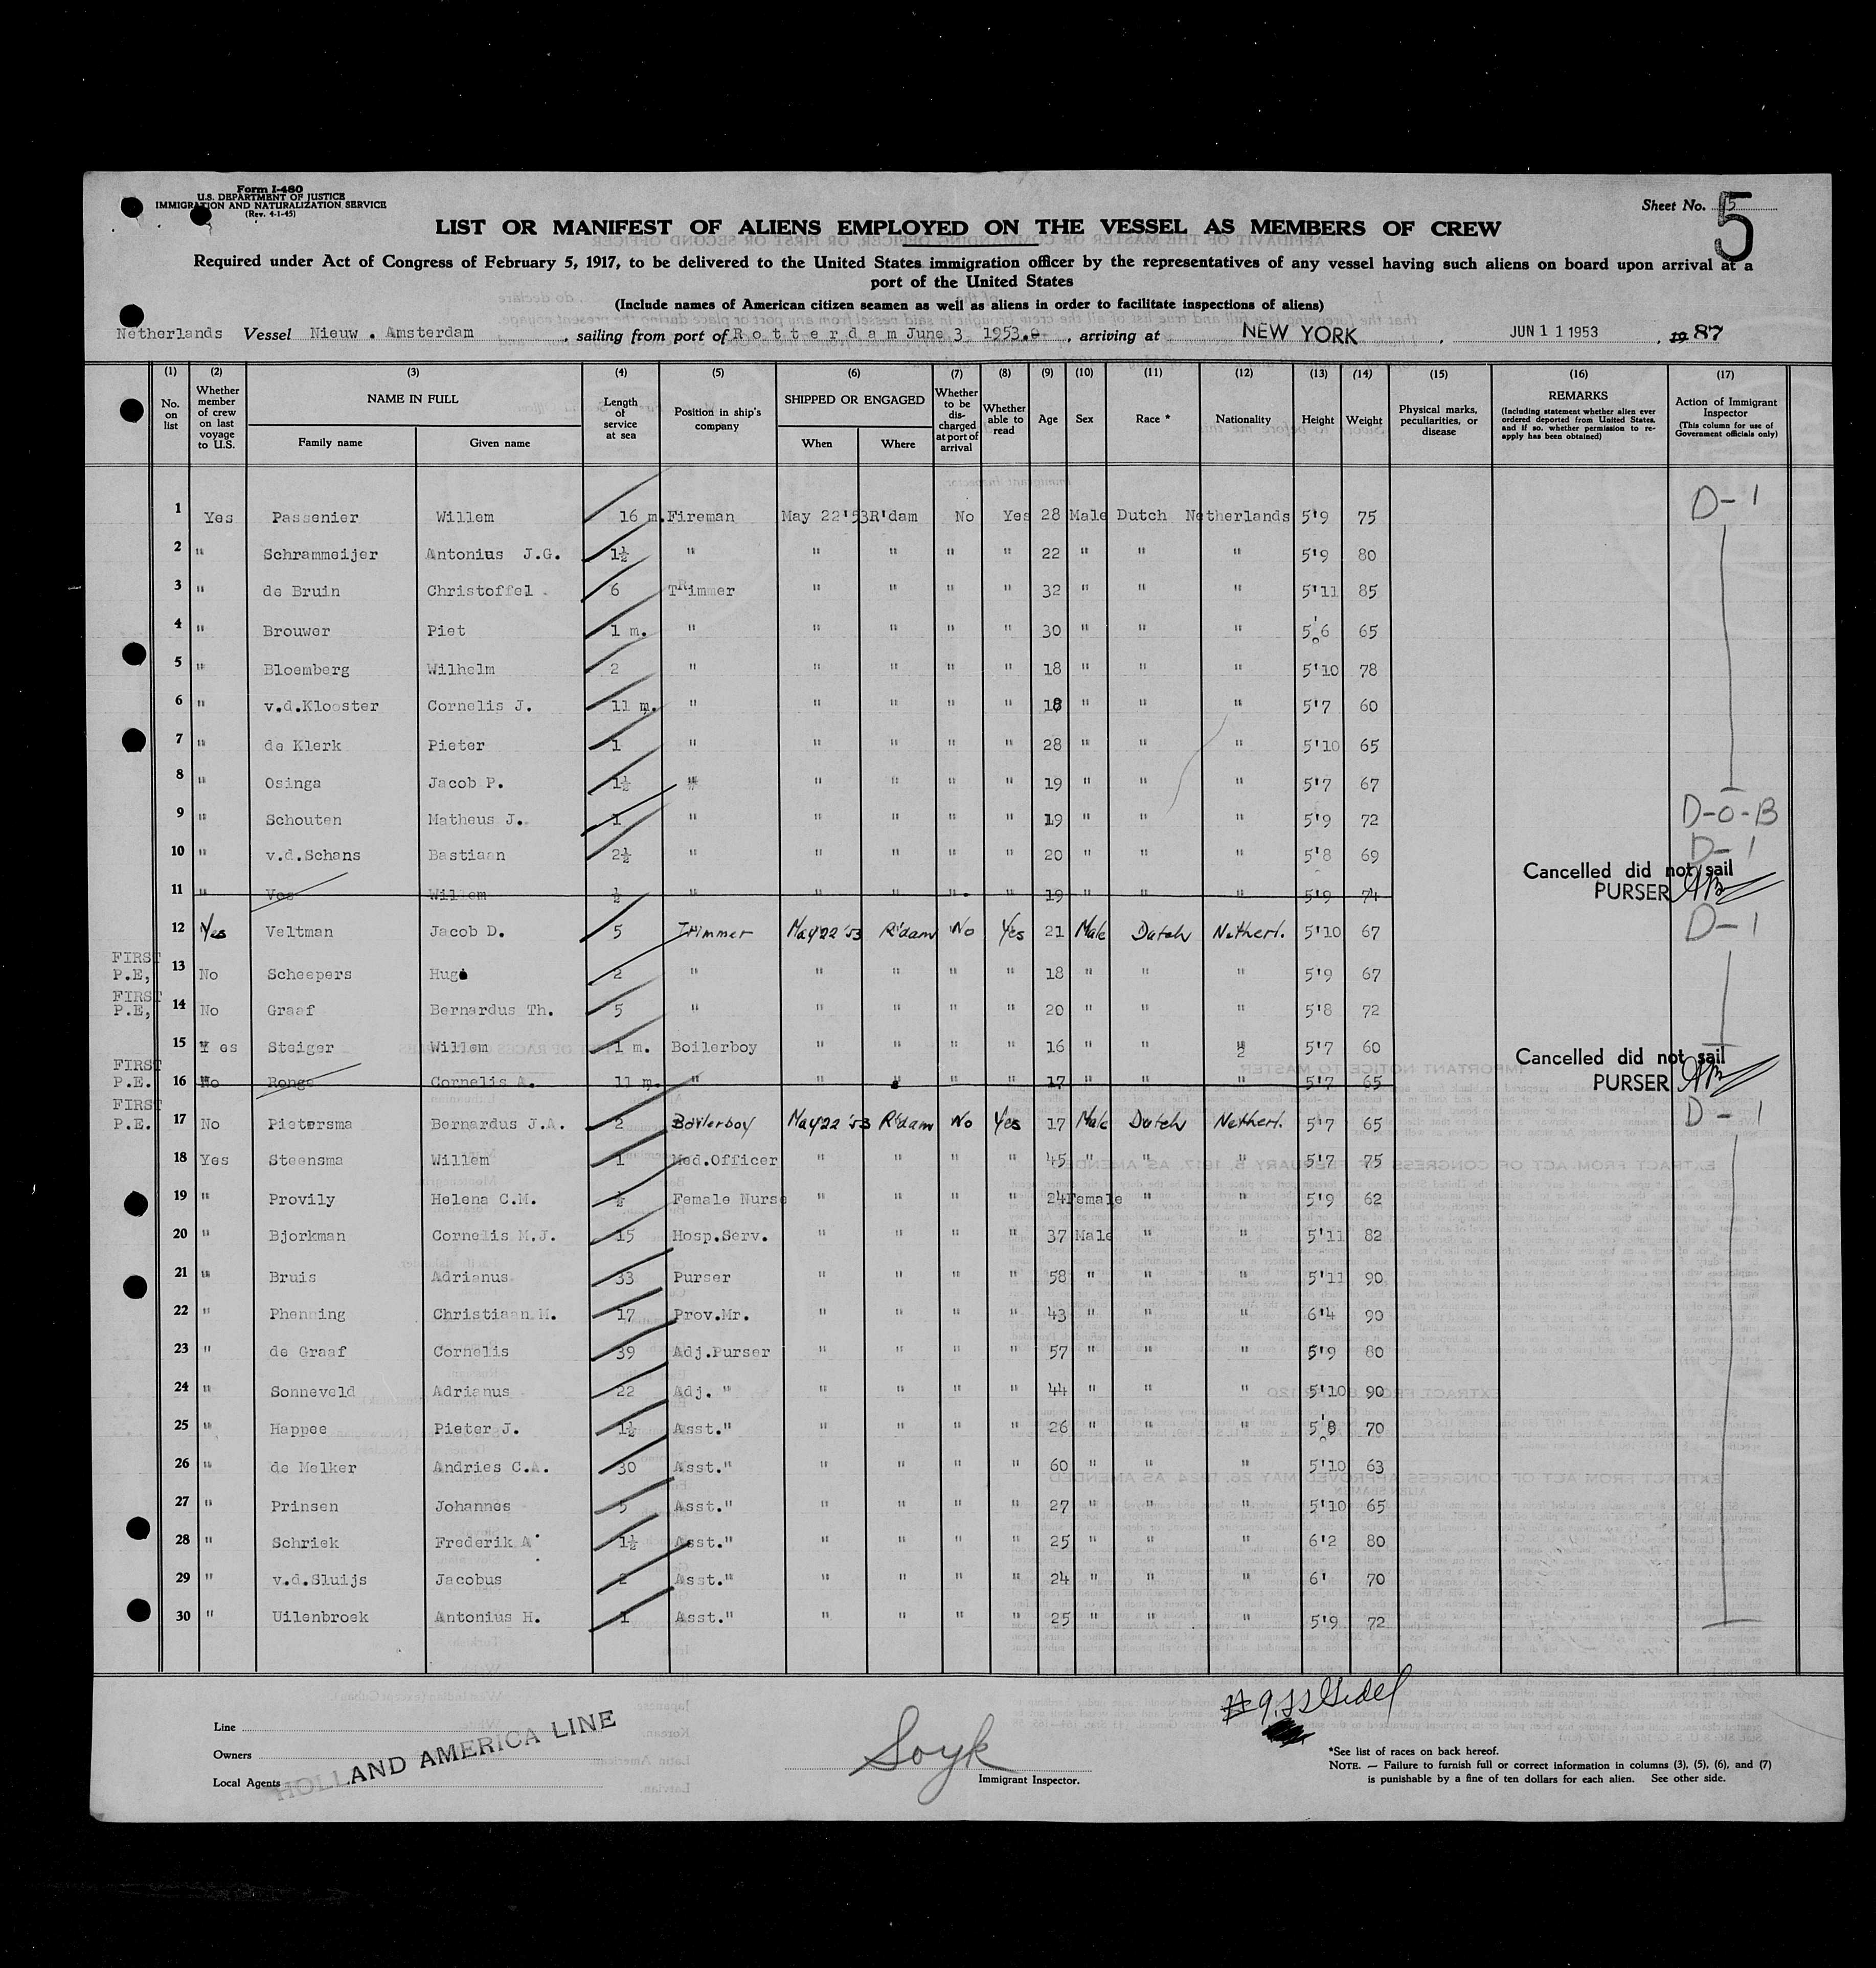 Form I-480
U.S. DEPARTMENT OF JUSTICE
IMMIGRATION AND NATURALIZATION SERVICE
(Rev. 4-1-45)
Sheet No. 5
5
LIST OR MANIFEST OF ALIENS EMPLOYED ON THE VESSEL AS MEMBERS OF CREW
Required under Act of Congress of February 5, 1917, to be delivered to the United States immigration officer by the representatives of any vessel having such aliens on board upon arrival at a
port of the United States
(Include names of American citizen seamen as well as aliens in order to facilitate inspections of aliens)
Netherlands Vessel Nieuw . Amsterdam , sailing from port of Rotterdam June 3 1953. , arriving at NEW YORK , JUN 11 1953 , 19 87
(1) (2) (3) (4) (5) (6) (7) (8) (9) (10) (11) (12) (13) (14) (15) (16) (17)
No. on list Whether member of crew on last voyage to U.S. NAME IN FULL Family name Given name Length of service at sea Position in ship's company SHIPPED OR ENGAGED When Where Whether to be discharged at port of arrival Whether able to read Age Sex Race * Nationality Height Weight Physical marks, peculiarities, or disease REMARKS (Including statement whether alien ever ordered deported from United States, and if so, whether permission to reapply has been obtained) Action of Immigrant Inspector (This column for use of Government officials only)
1 Yes Passenier Willem 16 m. Fireman May 22'53 R'dam No Yes 28 Male Dutch Netherlands 5'9 75 D-1
2 " Schrammeijer Antonius J.G. 1½ " " " " " 22 " " " 5'9 80
3 " de Bruin Christoffel . 6 TRimmer " " " " 32 " " " 5'11 85
4 " Brouwer Piet 1 m. " " " " " 30 " " " 5'6 65
5 " Bloemberg Wilhelm 2 " " " " " 18 " " " 5'10 78
6 " v.d.Klooster Cornelis J. 11 m. " " " " " 18 " " " 5'7 60
7 " de Klerk Pieter 1 " " " " " 28 " " " 5'10 65
8 " Osinga Jacob P. 1½ " " " " " 19 " " " 5'7 67
9 " Schouten Matheus J. 1 " " " " " 19 " " " 5'9 72 D-O-B
10 " v.d.Schans Bastiaan 2½ " " " " " 20 " " " 5'8 69 D-1
11 " Vos Willem ½ " " " " " 19 " " " 5'9 74 Cancelled did not sail PURSER
12 Yes Veltman Jacob D. 5 Trimmer May 22 '53 R'dam No Yes 21 Male Dutch Netherl. 5'10 67 D-1
FIRST P.E, 13 No Scheepers Hugo 2 " " " " " 18 " " " 5'9 67
FIRST P.E, 14 No Graaf Bernardus Th. 5 " " " " " 20 " " " 5'8 72
15 Yes Steiger Willem 1 m. Boilerboy " " " " 16 " " " 5'7 60
FIRST P.E. 16 No Ronge Cornelis A. 11 m. " " " " 17 " " " 5'7 65 Cancelled did not sail PURSER
FIRST P.E. 17 No Pietersma Bernardus J.A. 2 Boilerboy May 22 '53 R'dam No Yes 17 Male Dutch Netherl. 5'7 65 D-1
18 Yes Steensma Willem 1 Med.Officer " " " " 45 " " " 5'7 75
19 " Provily Helena C.M. ½ Female Nurse " " " " 24 Female " " 5'9 62
20 " Bjorkman Cornelis M.J. 15 Hosp.Serv. " " " " 37 Male " " 5'11 82
21 " Bruis Adrianus 33 Purser " " " " 58 " " " 5'11 90
22 " Phenning Christiaan M. 17 Prov.Mr. " " " " 43 " " " 6'4 90
23 " de Graaf Cornelis 39 Adj.Purser " " " " 57 " " " 5'9 80
24 " Sonneveld Adrianus 22 Adj. " " " " " 44 " " " 5'10 90
25 " Happee Pieter J. 1½ Asst." " " " " 26 " " " 5'8 70
26 " de Melker Andries C.A. 30 Asst." " " " " 60 " " " 5'10 63
27 " Prinsen Johannes 5 Asst." " " " " 27 " " " 5'10 65
28 " Schriek Frederik A 1½ Asst." " " " " 25 " " " 6'2 80
29 " v.d.Sluijs Jacobus 2 Asst." " " " " 24 " " " 6' 70
30 " Uilenbroek Antonius H. 1 Asst." " " " " 25 " " " 5'9 72
Line
Owners
Local Agents
HOLLAND AMERICA LINE
Soyk
Immigrant Inspector.
*See list of races on back hereof.
NOTE. — Failure to furnish full or correct information in columns (3), (5), (6), and (7)
is punishable by a fine of ten dollars for each alien. See other side.